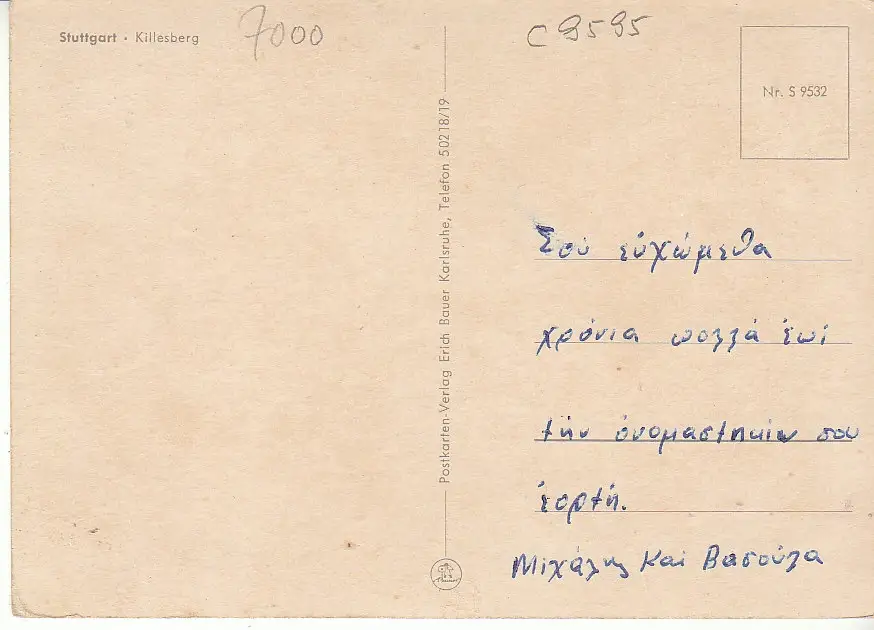 Stuttgart · Killesberg
7000
C 9595
Nr. S 9532
Postkarten-Verlag Erich Bauer Karlsruhe, Telefon 50218/19
Σοῦ εὐχώμεθα
χρόνια πολλά ἐπί
τήν ὀνομαστηκήν σου
ἑορτή.
Μιχάλης Καί Βασούλα